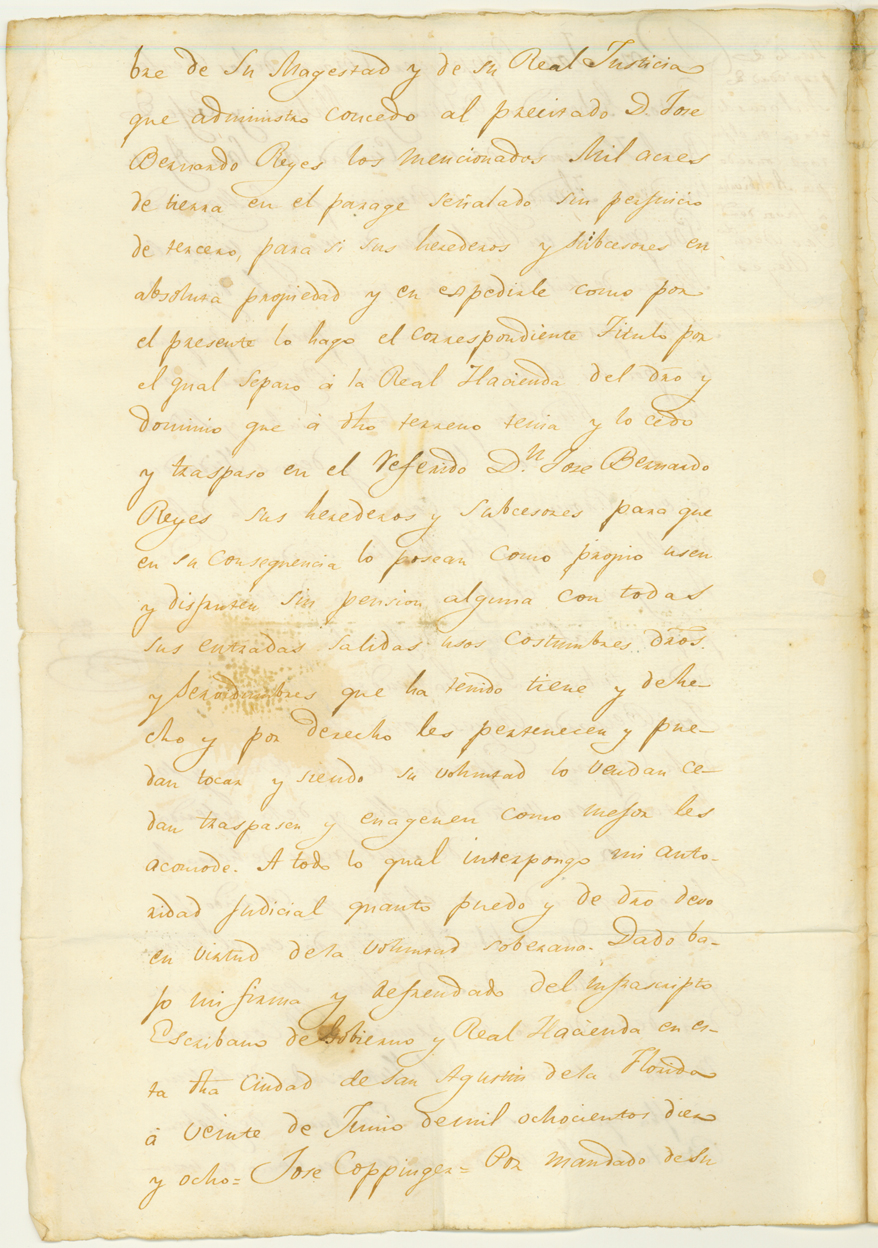 bre de Su Magestad y de su Real Justicia
que administro concedo al precitado D. Jose
Bernardo Reyes los mencionados Mil acres
de tierra en el parage señalado sin perjuicio
de tercero, para si sus herederos y subcesores en
absoluta propiedad y en espedirle como por
el presente lo hago el correspondiente Titulo por
el qual separo á la Real Hacienda del dro y
dominio que á dho terreno tenia y lo cedo
y traspaso en el referido D.n Jose Bernardo
Reyes sus herederos y subcesores para que
en su consequencia lo posean como propio usen
y disfruten sin pension alguna con todas
sus entradas salidas usos costumbres dros.
y servidumbres que ha tenido tiene y de he-
cho y por derecho les pertenecen y pue-
dan tocar y siendo su voluntad lo vendan ce-
dan traspasen y enagenen como mejor les
acomode. A todo lo qual interpongo mi auto-
ridad judicial quanto puedo y de dro devo
en virtud de la voluntad soberana. Dado ba-
jo mi firma y refrendado del infrascripto
Escribano de Gobierno y Real Hacienda en es-
ta dha Ciudad de San Agustin de la Florida
á veinte de Junio de mil ochocientos diez
y ocho = Jose Coppinger = Por mandado de Su